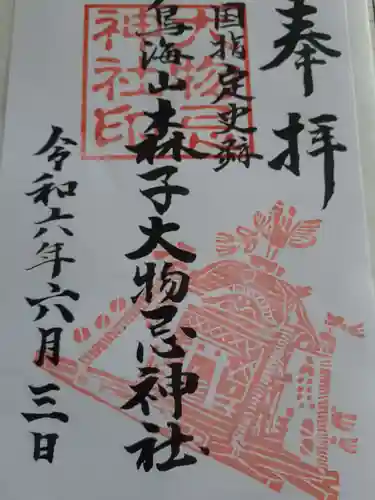 奉拝
国指定史跡
鳥海山森子大物忌神社
令和六年六月三日
大物忌
神社印